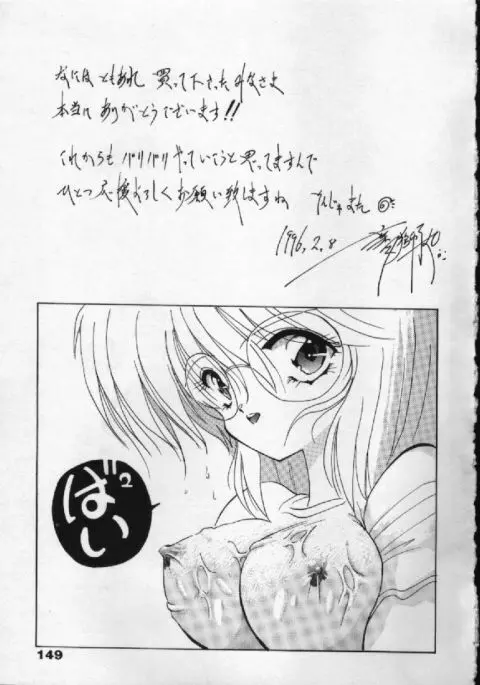 なにはともあれ 買って下さったみなさま
本当に ありがとうございます!!
これからも バリバリやっていこうと思ってますんで
ひとつ応援よろしくお願い致しますね
1996.2.8
ばい2
149